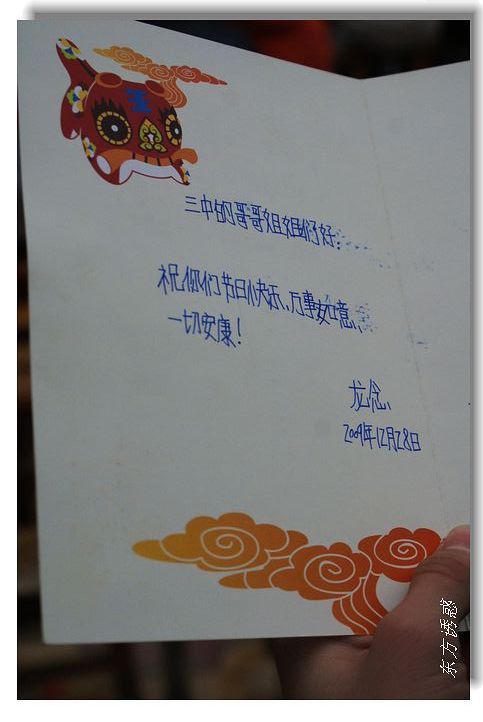 三中的哥哥姐姐们好:
祝你们节日快乐、万事如意、
一切安康!
龙念
2009年12月28日
东方诱惑